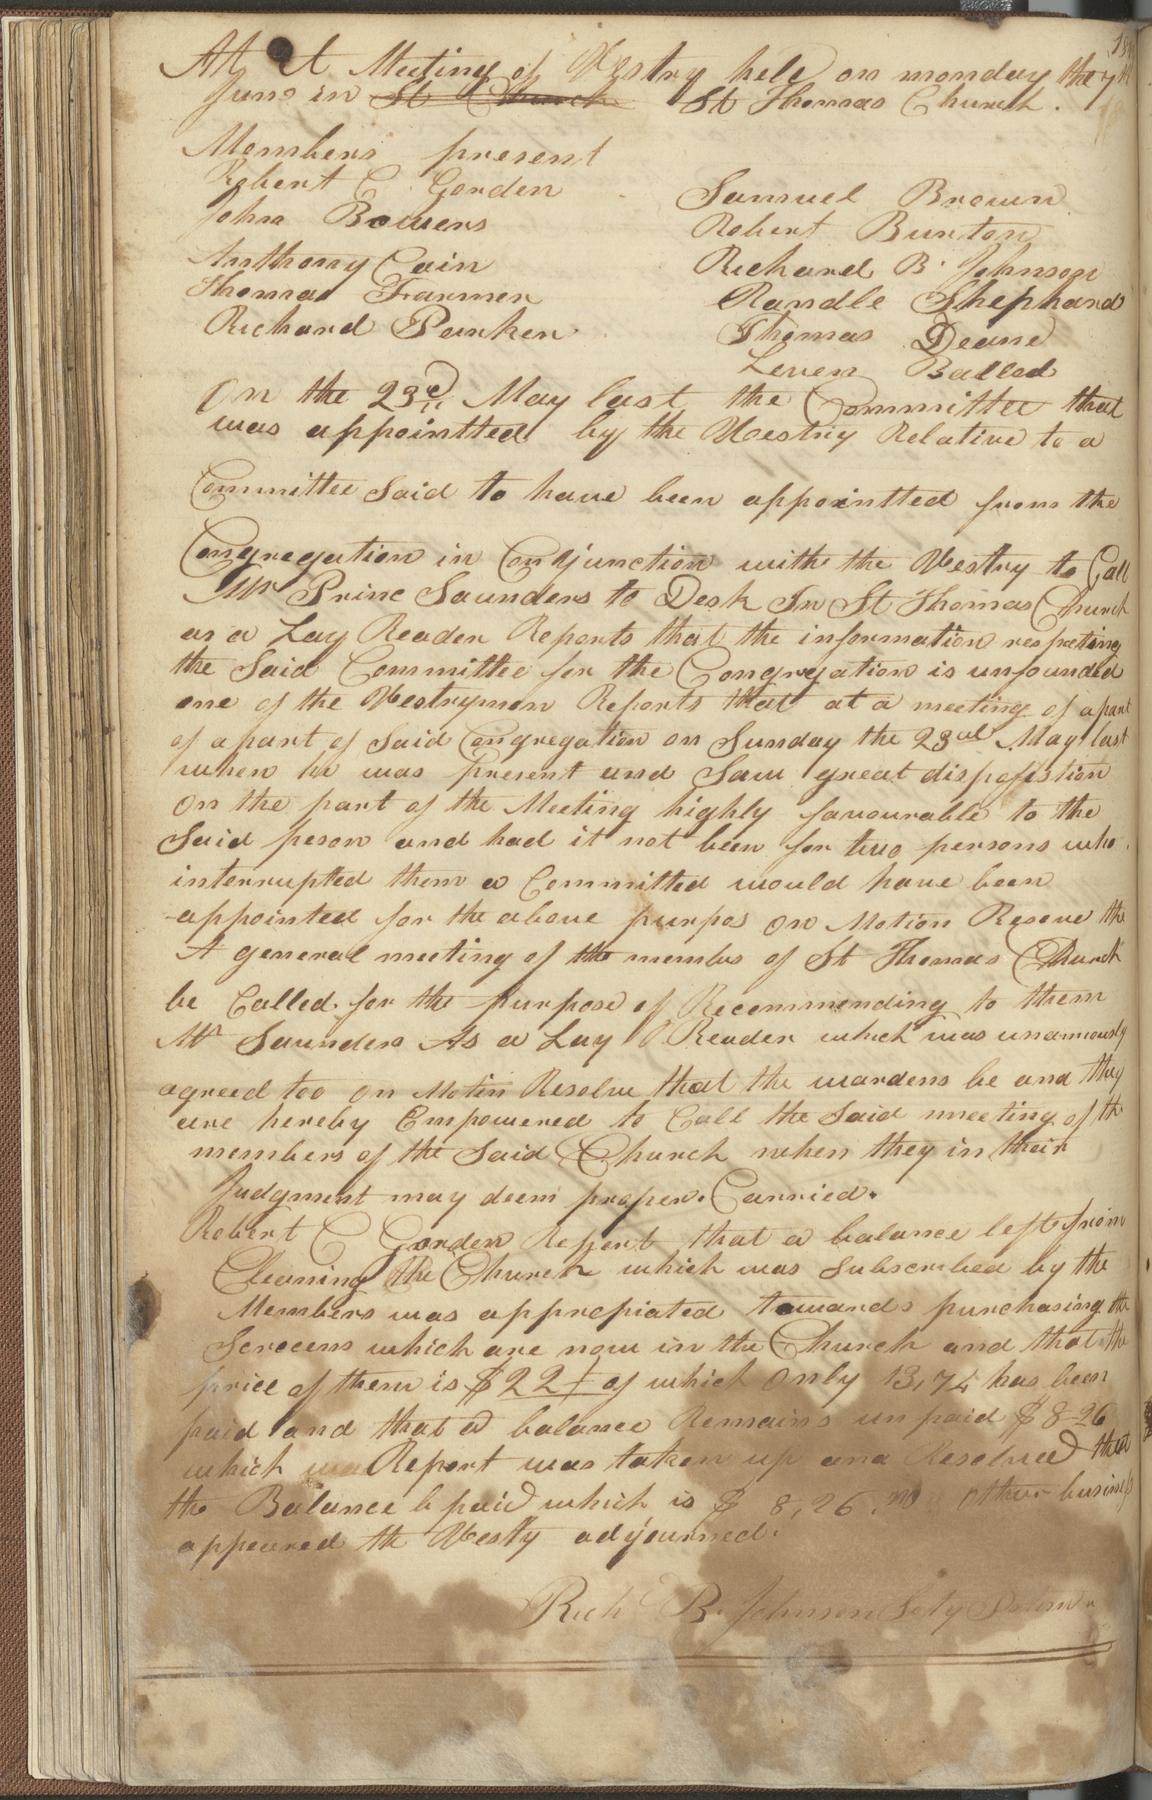 At A Meeting of Vestry held on monday the 7th
June in St Church St Thomas Church.
Members present
Robert C Gorden
John Bowers
Anthony Cain
Thomas Farmer
Richard Parker
Samuel Brown
Robert Burton
Richard B. Johnson
Randle Shephard
Thomas Deane
Leven Balled
On the 23d May last the Committee that
was appointted by the Vestriy Relative to a
Committee Said to have been appointted from the
Congregation in Conjunction withe the Vestry to Call
Mr Princ Saunders to Desk In St Thomas Church
as a Lay Reader Reports that the information respecting
the Said Committee for the Congregation is unfounded
one of the Vestrymen Reports that at a meeting of a part
of a part of Said Congregation on Sunday the 23rd May last
when he was present and Saw great disposistion
on the part of the Meeting highly favourable to the
Said peson and had it not been for two persons who
interrupted them a Committed would have been
appointed for the above purpos on Motion Resove the
A general meeting of the membs of St Thomas Church
be Called for the purpose of Recommending to them
Mr Saunders As a Lay Reader which was unamously
agreed too on Motin Resolve that the wardens be and they
are hereby Empowered to Call the Said meeting of the
members of the Said Church when they in their
Judgment may deem proper. Carried.
Robert C Gorden Report that a balance left from
Cleaning the Church which was Subscribed by the
Members was apprepiated towards purchasing the
Screens which are now in the Church and that the
price of them is $22 of which only 13,74 has been
paid and that a balance Remains un paid $8-26
which Report was taken up and Resolved that
the Balance b paid which is $ 8,26. no other business
appeared the Vesty adyourned.
Rich B. Johnson Sety